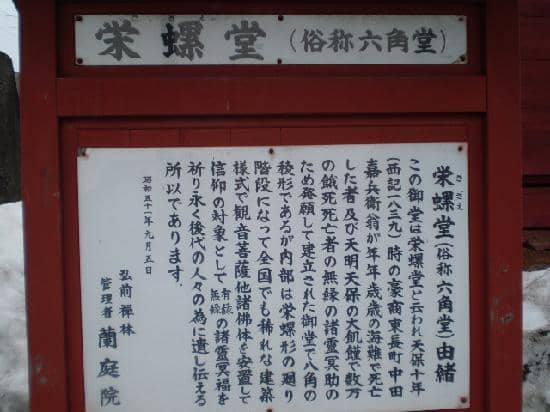 栄螺堂(俗称六角堂)
さざえ
栄螺堂(俗称六角堂)由緒
この御堂は栄螺堂と云われ天保十年
(西記一八三九)時の豪商東長町中田
嘉兵衛翁が年年歳歳の海難で死亡
した者及び天明天保の大飢饉で数万
の餓死死亡者の無縁の諸霊冥助の
ため発願して建立された御堂で八角の
稜形であるが内部は栄螺形の廻り
階段になって全国でも稀れな建築
様式で観音菩薩他諸佛体を安置して
信仰の対象として有縁無縁の諸霊冥福を
祈り永く後代の人々の為に遺し伝える
所以であります。
昭和五十一年九月五日
弘前禅林
管理者 蘭庭院